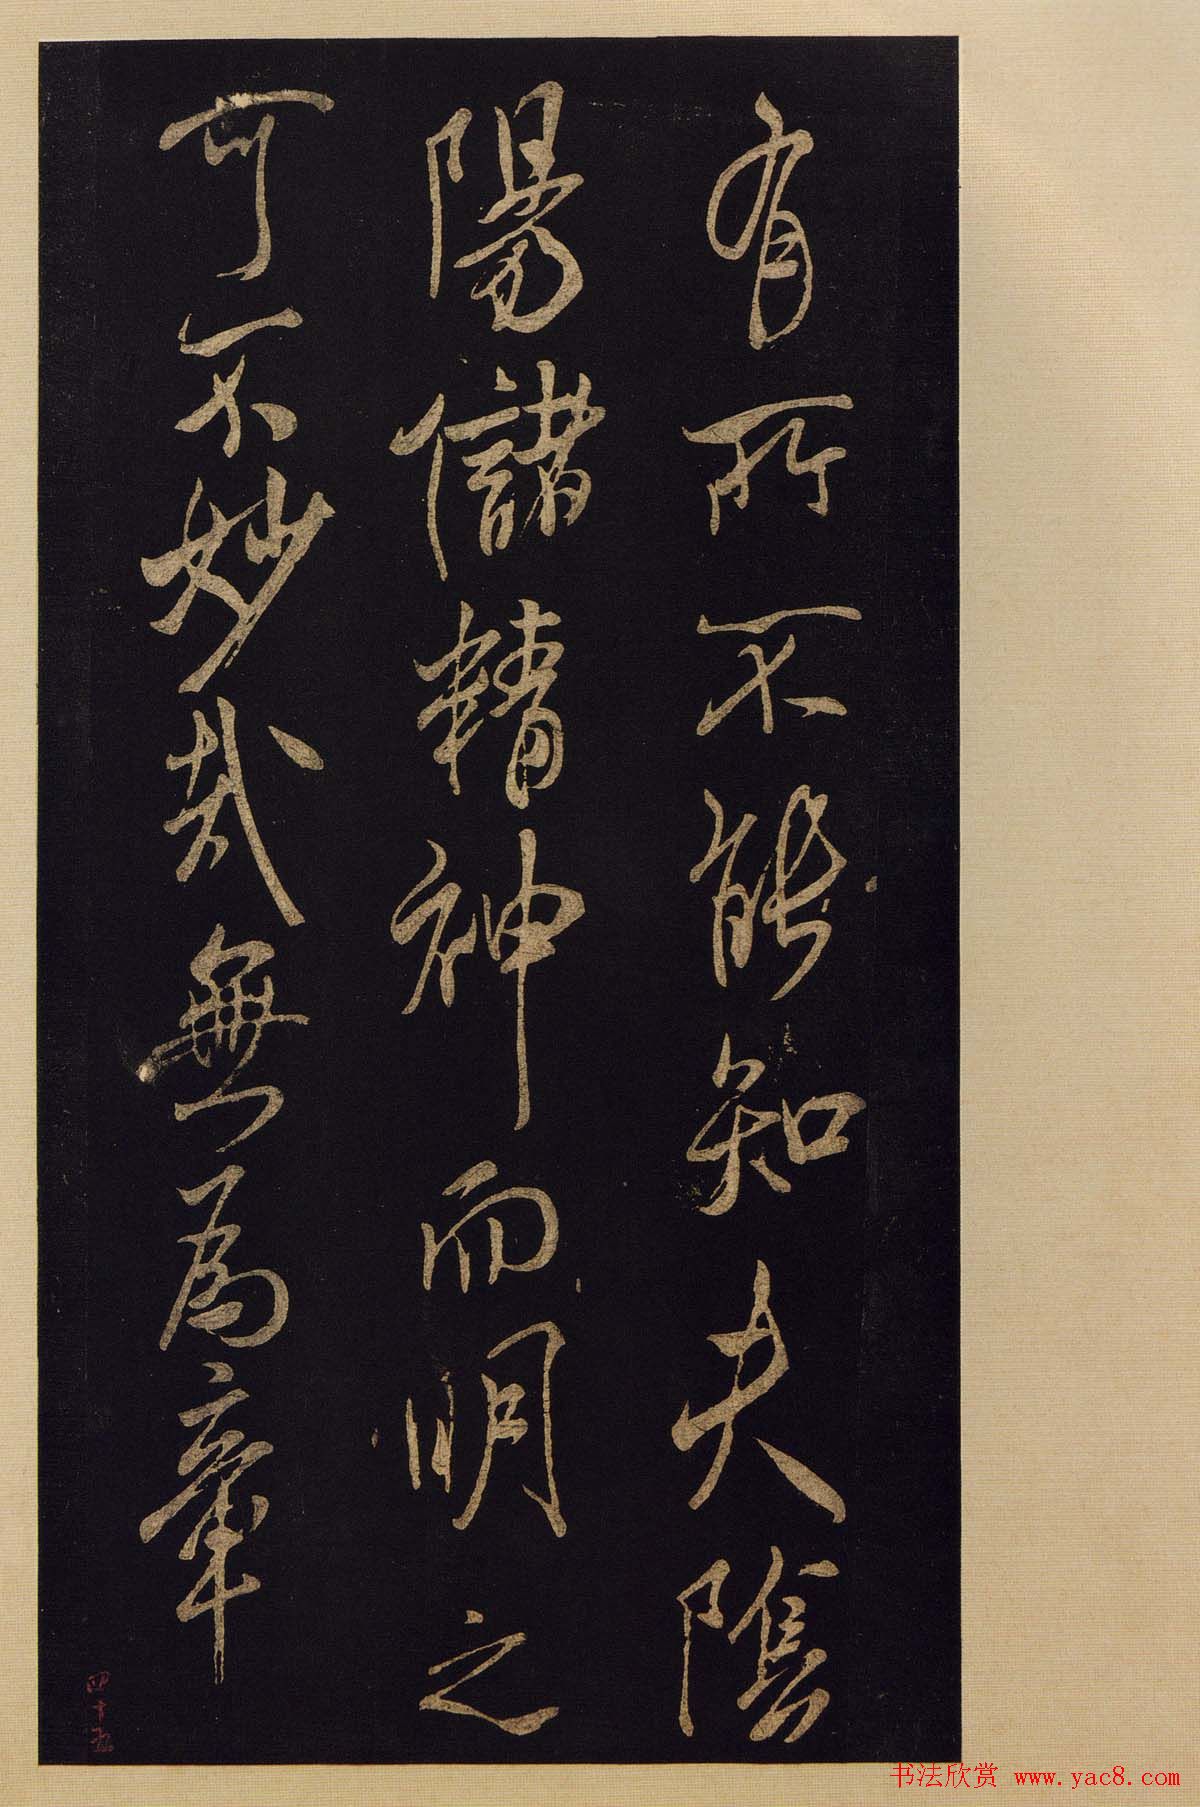 有所不能知夫陰
陽儲精神而明之
可不妙哉無為章
四十五
书法欣赏 www.yac8.com